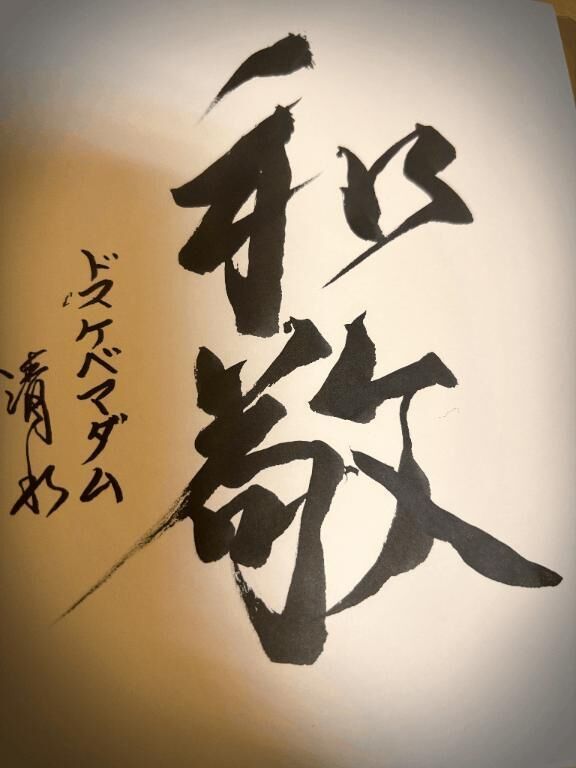 和敬
ドスケベマダム
清水